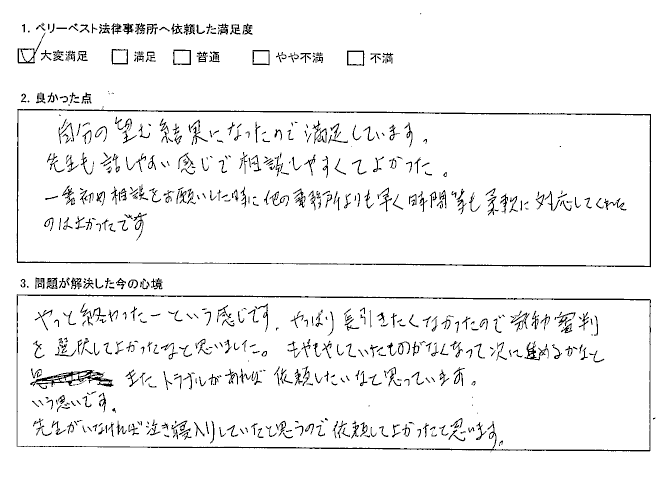 1. ベリーベスト法律事務所へ依頼した満足度
大変満足 満足 普通 やや不満 不満
2. 良かった点
自分の望む結果になったので満足しています。
先生も話しやすい感じで相談しやすくてよかった。
一番初め相談をお願いした時に他の事務所よりも早く時間等も柔軟に対応してくれた
のはよかったです
3. 問題が解決した今の心境
やっと終わったーという感じです。やっぱり長引きたくなかったので労働審判
を選択してよかったなと思いました。もやもやしていたものがなくなって次に進めるかなと
またトラブルがあれば依頼したいなと思っています。
いう思いです。
先生がいなければ泣き寝入りしていたと思うので依頼してよかったと思います。